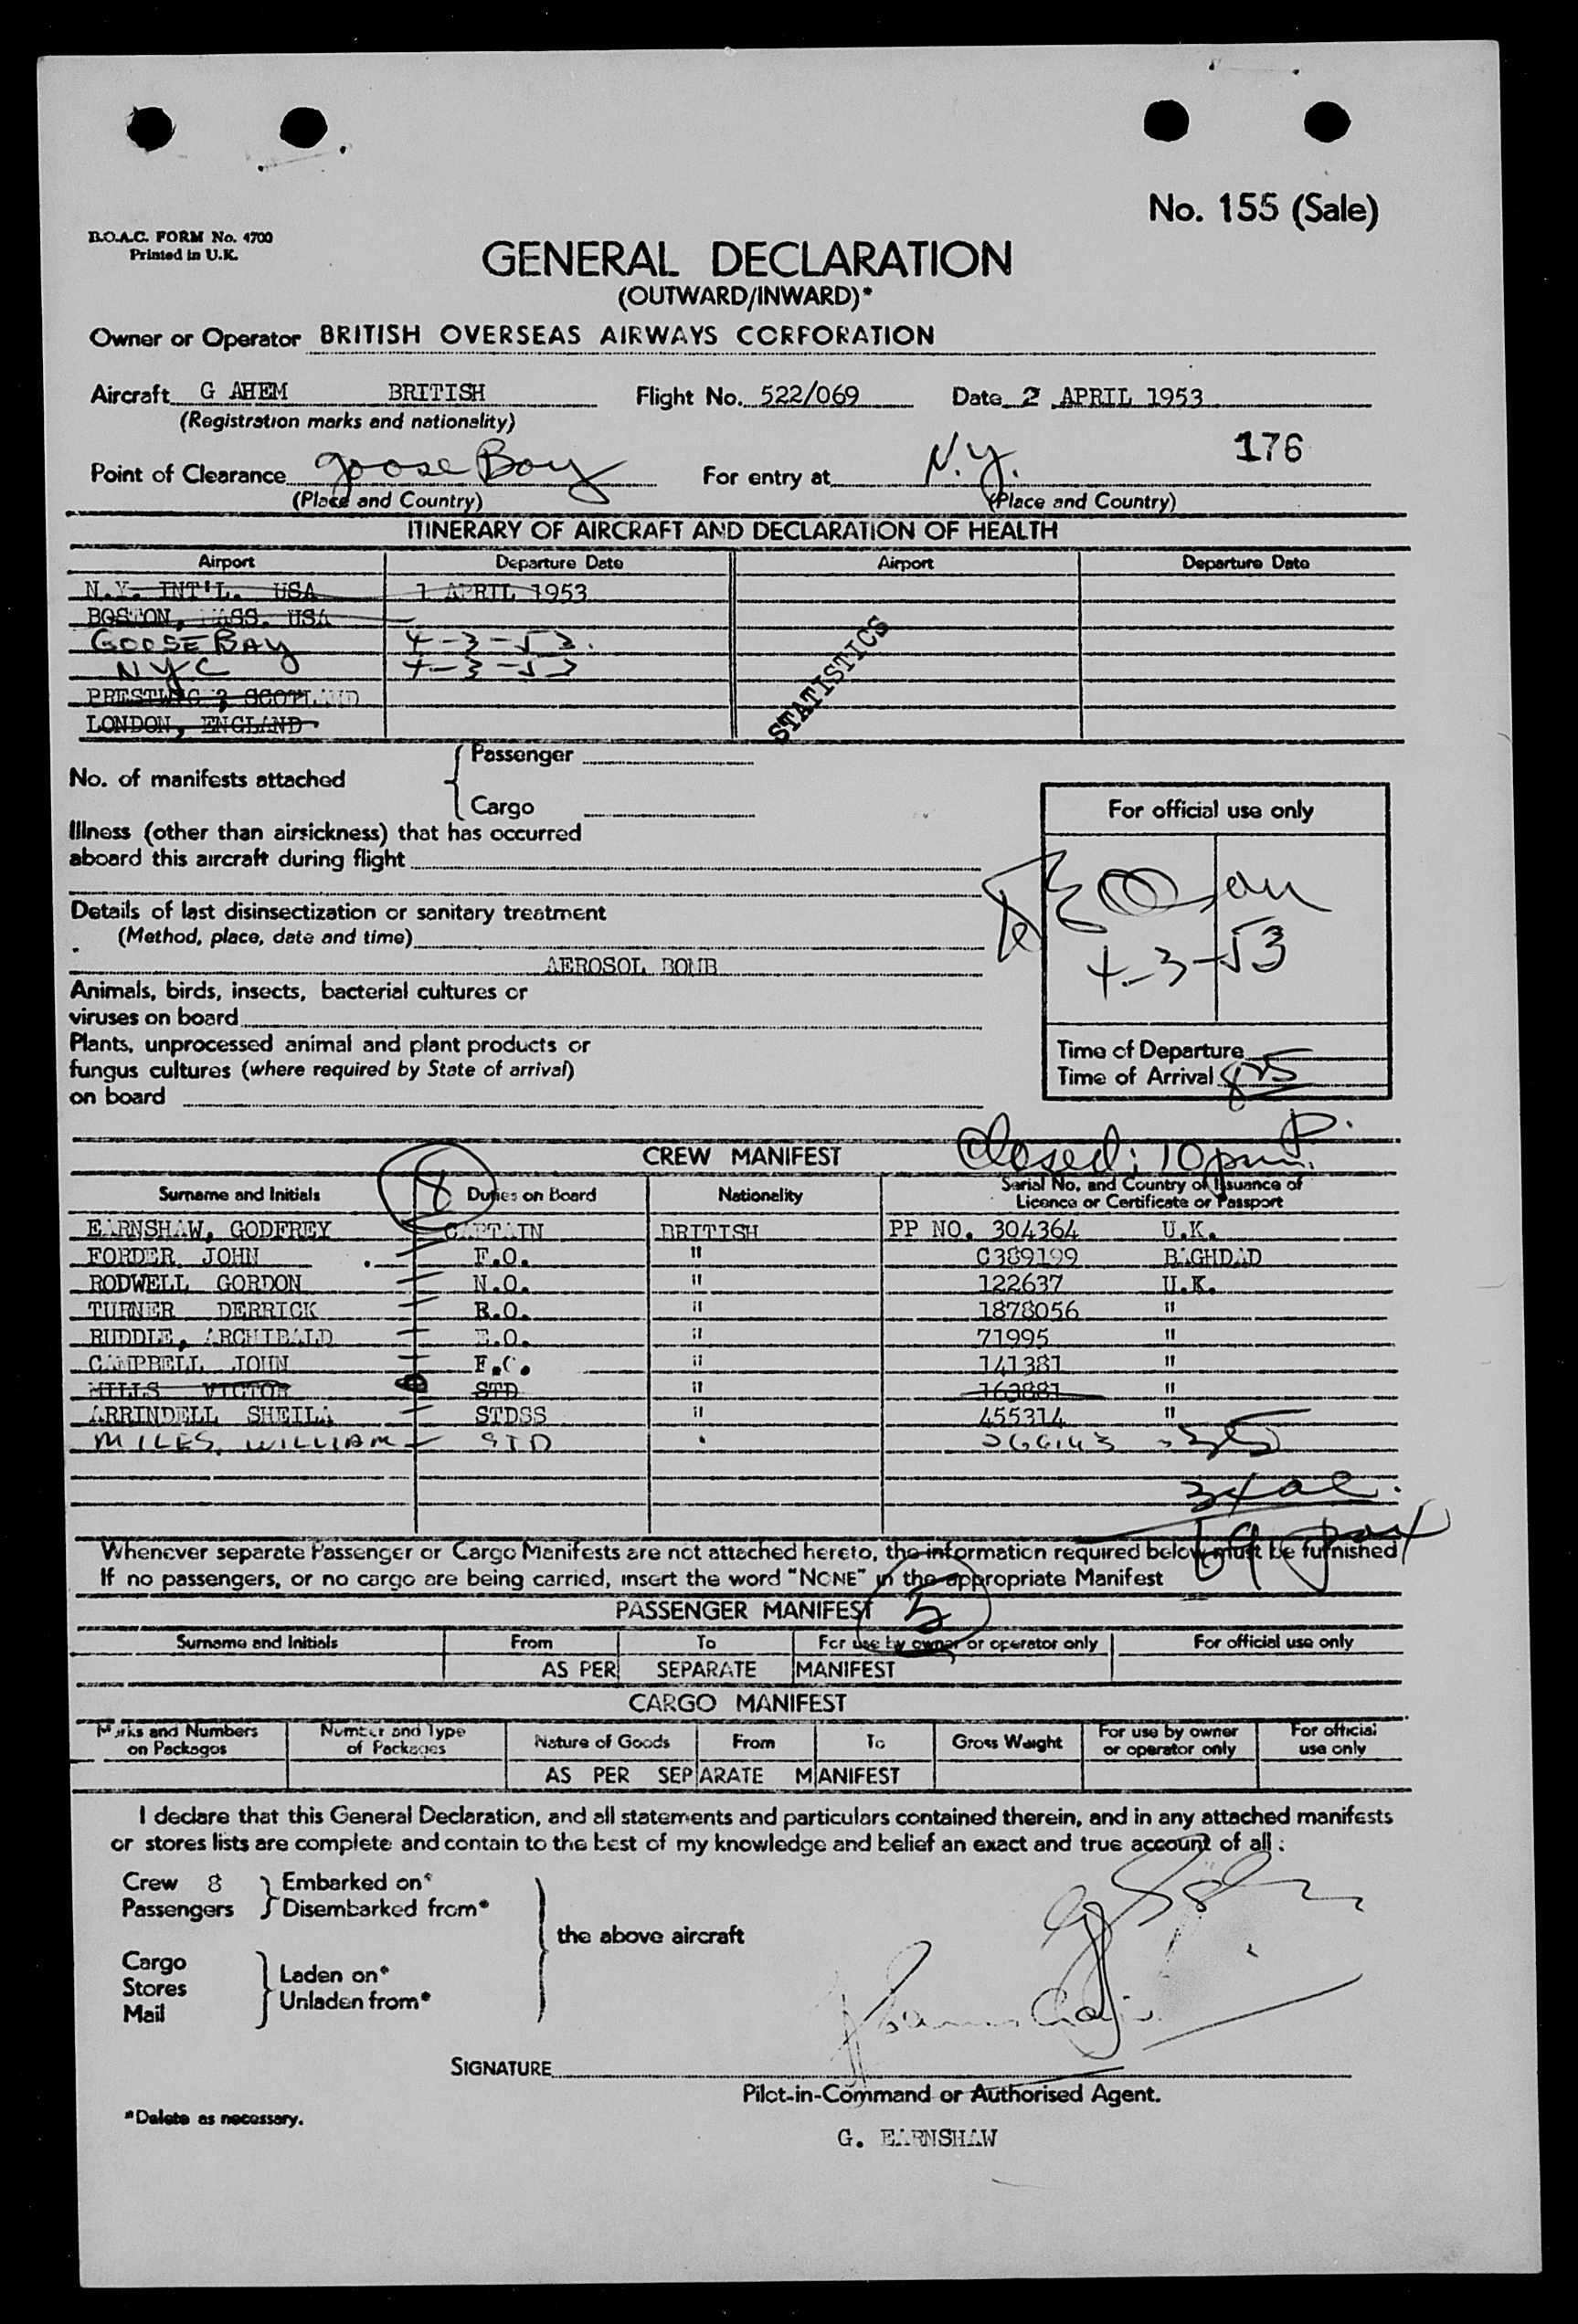 No. 155 (Sale)
B.O.A.C. FORM No. 4700
Printed in U.K.
GENERAL DECLARATION
(OUTWARD/INWARD)*
Owner or Operator BRITISH OVERSEAS AIRWAYS CORPORATION
Aircraft G AHEM BRITISH Flight No. 522/069 Date 2 APRIL 1953
(Registration marks and nationality)
176
Point of Clearance Goose Bay For entry at N.Y.
(Place and Country) (Place and Country)
ITINERARY OF AIRCRAFT AND DECLARATION OF HEALTH
Airport Departure Date Airport Departure Date
N.Y. INT'L. USA 1 APRIL 1953
BOSTON, MASS. USA
GOOSE BAY 4-3-53.
NYC 4-3-53
PRESTWICK, SCOTLAND
LONDON, ENGLAND
STATISTICS
No. of manifests attached
Passenger
Cargo
Illness (other than airsickness) that has occurred
aboard this aircraft during flight
Details of last disinsectization or sanitary treatment
(Method, place, date and time)
AEROSOL BOMB
Animals, birds, insects, bacterial cultures or
viruses on board
Plants, unprocessed animal and plant products or
fungus cultures (where required by State of arrival)
on board
For official use only
4-3-53
Time of Departure
Time of Arrival
Closed: 10 pm
CREW MANIFEST
8
Surname and Initials Duties on Board Nationality Serial No. and Country of Issuance of
Licence or Certificate or Passport
EARNSHAW, GODFREY CAPTAIN BRITISH PP NO. 304364 U.K.
FORDER JOHN F.O. " C389199 BAGHDAD
RODWELL GORDON N.O. " 122637 U.K.
TURNER DERRICK R.O. " 1878056 "
RUDDLE, ARCHIBALD E.O. " 71995 "
CAMPBELL JOHN F.O. " 141381 "
MILLS VICTOR STD " 163881 "
ARRINDELL SHEILA STDSS " 455314 "
MILES, WILLIAM STD "
35
34 al.
69 pax
Whenever separate Passenger or Cargo Manifests are not attached hereto, the information required below must be furnished
If no passengers, or no cargo are being carried, insert the word "NONE" in the appropriate Manifest
PASSENGER MANIFEST
5
Surname and Initials From To For use by owner or operator only For official use only
AS PER SEPARATE MANIFEST
CARGO MANIFEST
Marks and Numbers on Packages Number and Type of Packages Nature of Goods From To Gross Weight For use by owner or operator only For official use only
AS PER SEPARATE MANIFEST
I declare that this General Declaration, and all statements and particulars contained therein, and in any attached manifests
or stores lists are complete and contain to the best of my knowledge and belief an exact and true account of all:
Crew 8 Embarked on*
Passengers Disembarked from*
the above aircraft
Cargo
Stores
Mail
Laden on*
Unladen from*
SIGNATURE
Pilot-in-Command or Authorised Agent.
*Delete as necessary.
G. EARNSHAW